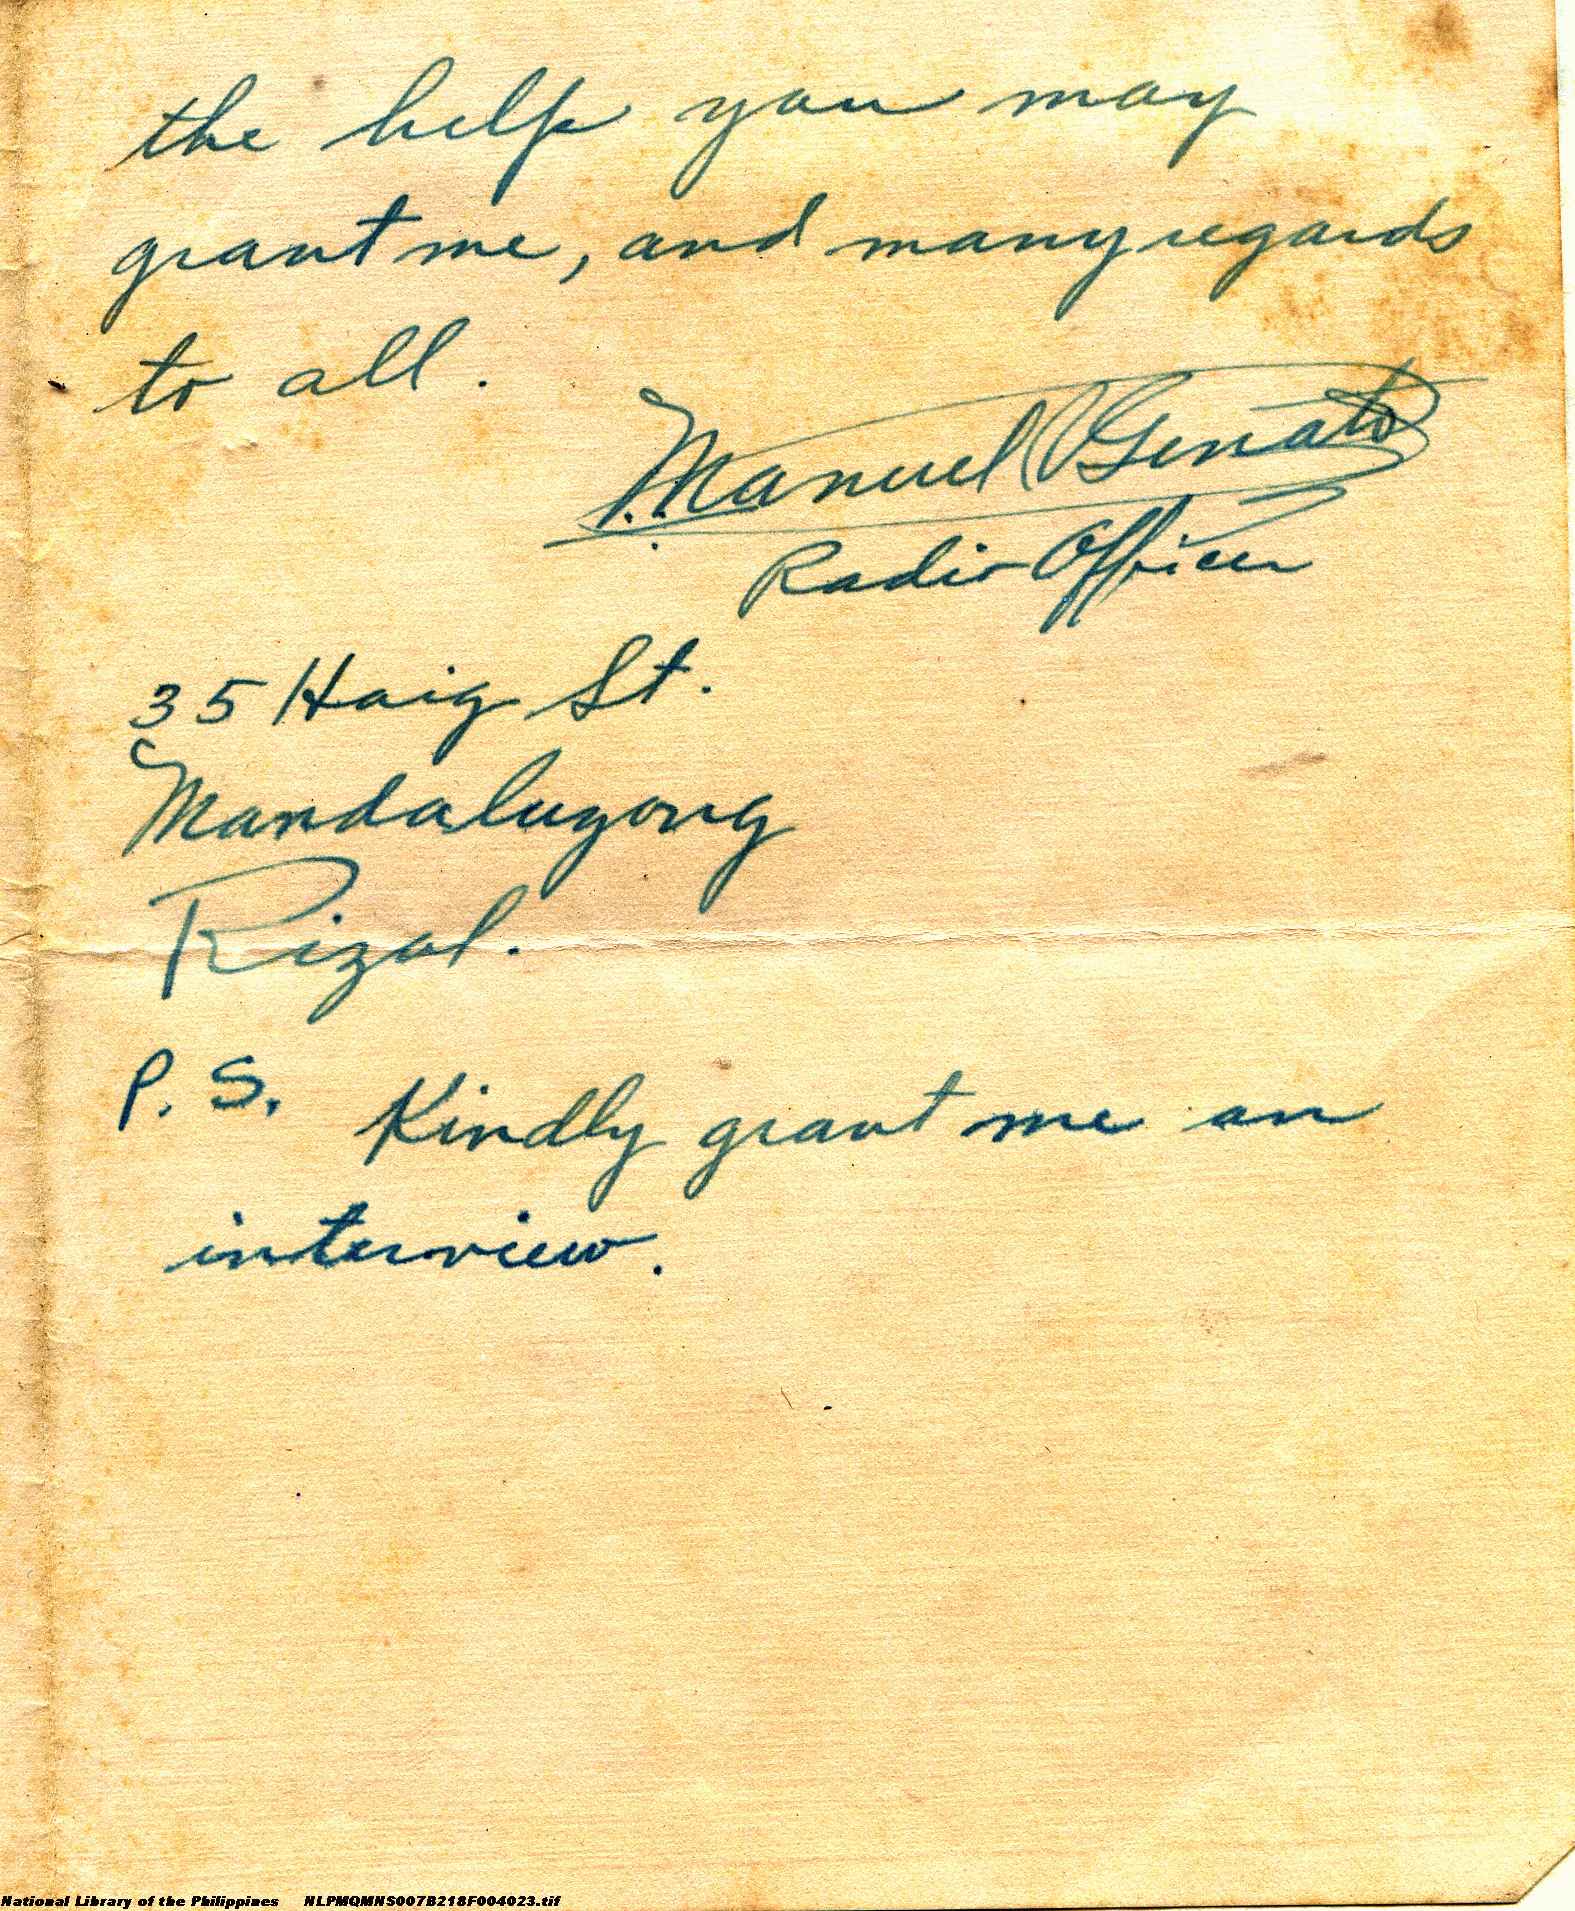 the help you may
grant me, and many regards
to all.
Manuel Genato
Radio Officer
35 Haig St.
Mandaluyong
Rizal.
P. S. Kindly grant me an
interview.
National Library of the Philippines NLPMQMNS007B218F004023.tif